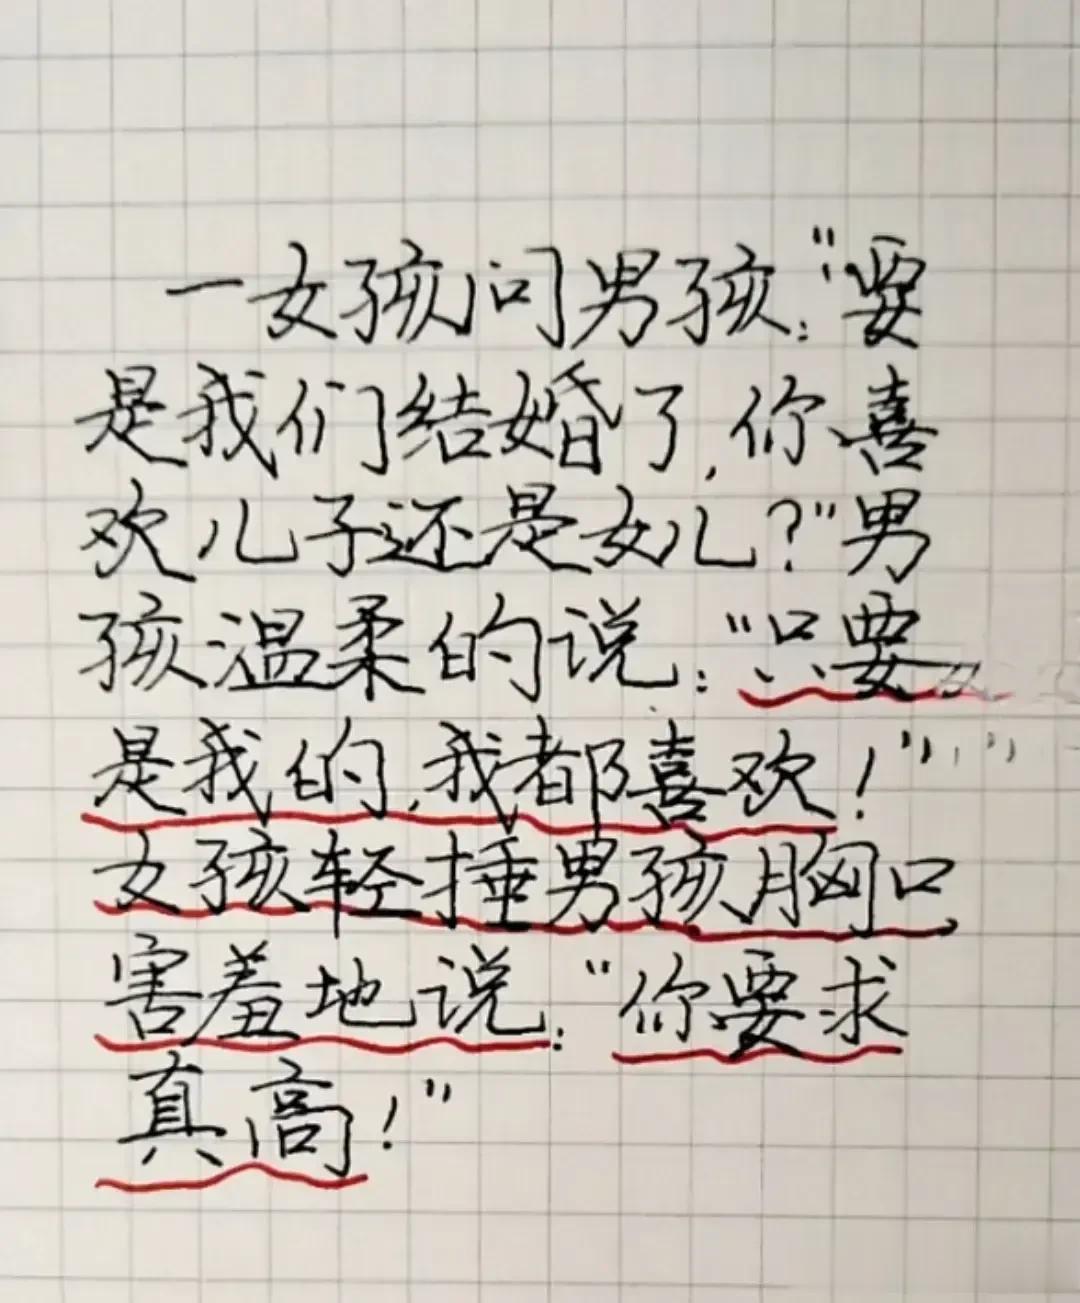 一女孩问男孩："要
是我们结婚了,你喜
欢儿子还是女儿?"男
孩温柔的说："只要
是我的,我都喜欢!"
女孩轻捶男孩胸口
害羞地说："你要求
真高!"